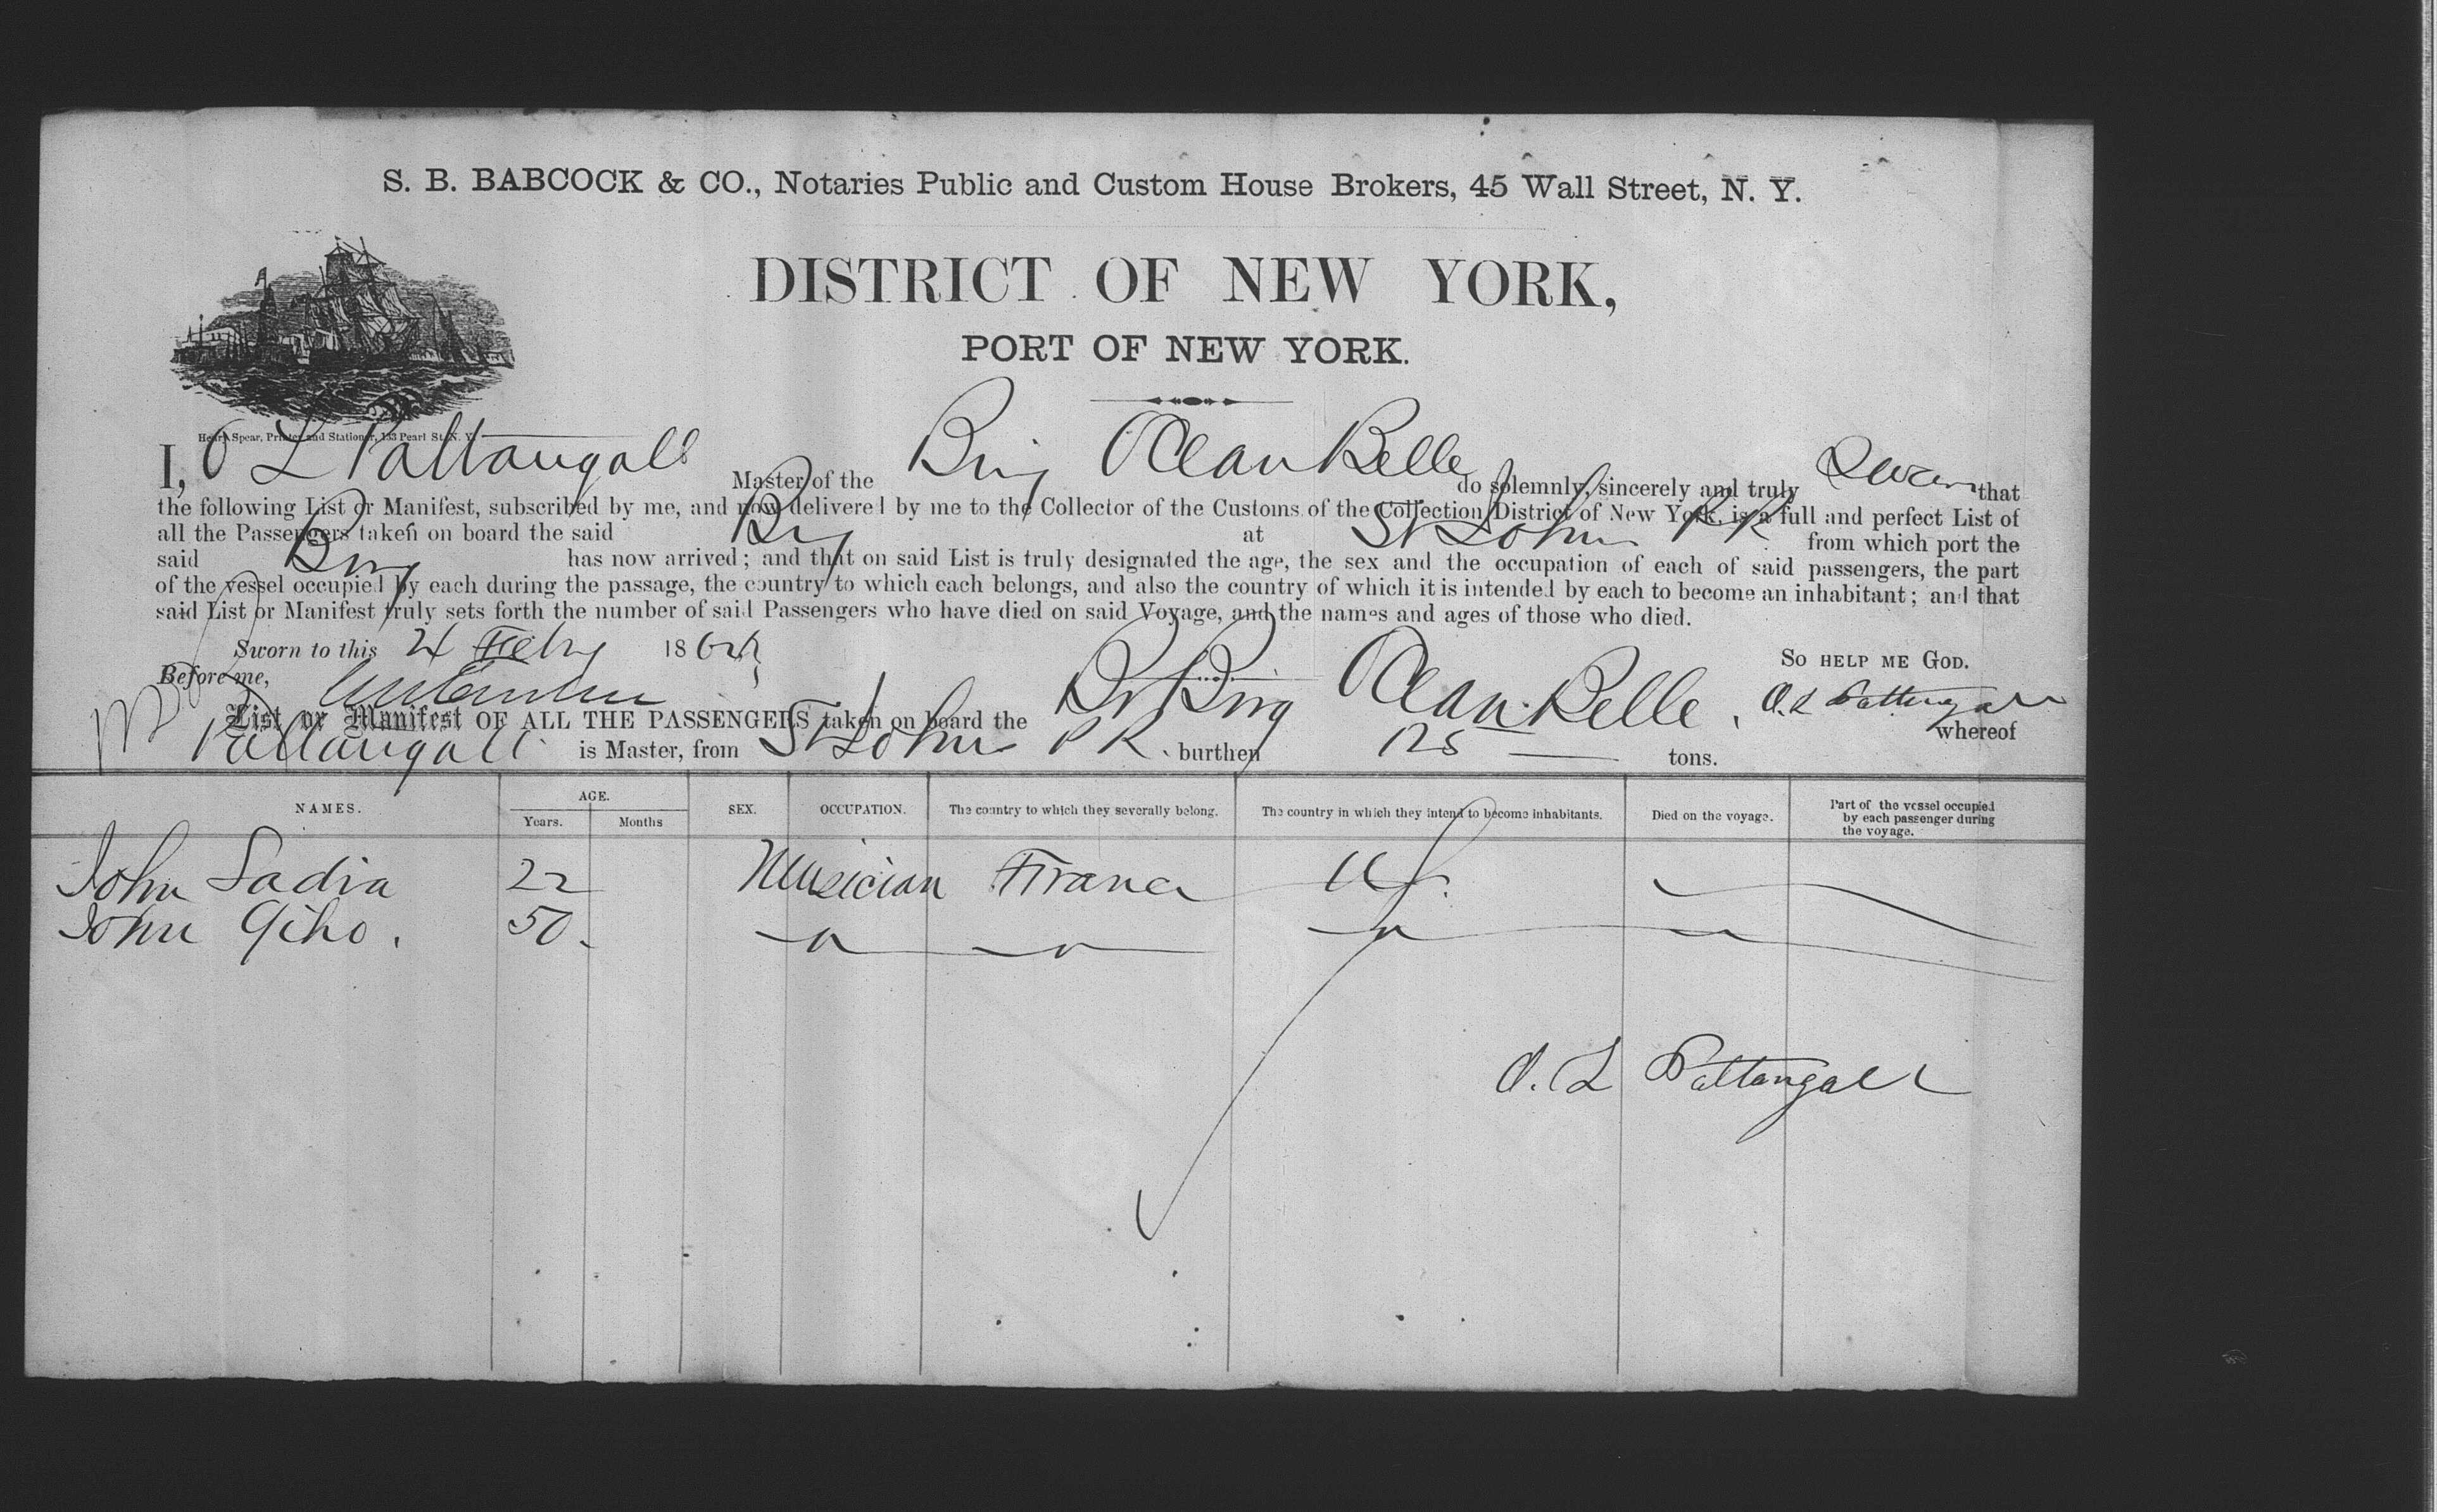 S. B. BABCOCK & CO., Notaries Public and Custom House Brokers, 45 Wall Street, N. Y.
DISTRICT OF NEW YORK,
PORT OF NEW YORK.
Henry Spear, Printer and Stationer, 133 Pearl St. N. Y.
I, O L Pattangall Master of the Brig Ocean Belle do solemnly, sincerely and truly Swear that
the following List or Manifest, subscribed by me, and now delivered by me to the Collector of the Customs of the Collection District of New York, is a full and perfect List of
all the Passengers taken on board the said Brig at St Johns P R from which port the
said Brig has now arrived; and that on said List is truly designated the age, the sex and the occupation of each of said passengers, the part
of the vessel occupied by each during the passage, the country to which each belongs, and also the country of which it is intended by each to become an inhabitant; and that
said List or Manifest truly sets forth the number of said Passengers who have died on said Voyage, and the names and ages of those who died.
Sworn to this 4 Feby 186 So HELP ME GOD.
Before me, O. L Pattangall
List or Manifest OF ALL THE PASSENGERS taken on board the Br Brig Ocean Belle, whereof
Pattangall is Master, from St Johns P R. burthen 125 tons.
NAMES. AGE. Years. Months SEX. OCCUPATION. The country to which they severally belong. The country in which they intend to become inhabitants. Died on the voyage. Part of the vessel occupied by each passenger during the voyage.
John Sadia 22 Musician France U S.
John Giho. 50. " " "
O. L Pattangall